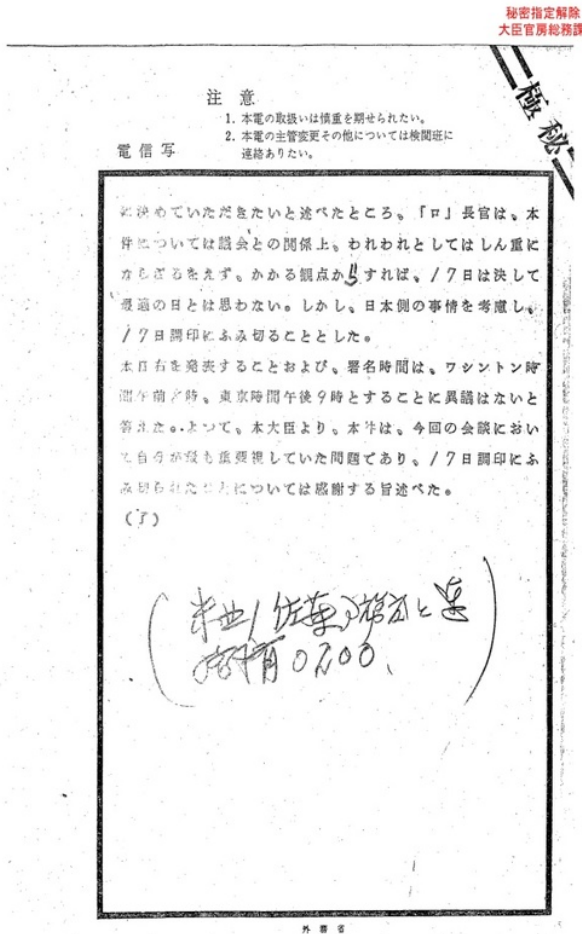 秘密指定解除
大臣官房総務課
極秘
注意
1. 本電の取扱いは慎重を期せられたい。
2. 本電の主管変更その他については検閲班に
連絡ありたい。
電信写
に決めていただきたいと述べたところ、「ロ」長官は、本
件については議会との関係上、われわれとしてはしん重に
ならざるをえず、かかる観点からすれば、17日は決して
最適の日とは思わない。しかし、日本側の事情を考慮し、
17日調印にふみ切ることとした。
本日右を発表することおよび、署名時間は、ワシントン時
間午前 時、東京時間午後9時とすることに異議はないと
答えた。よつて、本大臣より、本件は、今回の会談におい
て自分が最も重要視していた問題であり、17日調印にふ
み切られたことについては感謝する旨述べた。
(了)
外務省